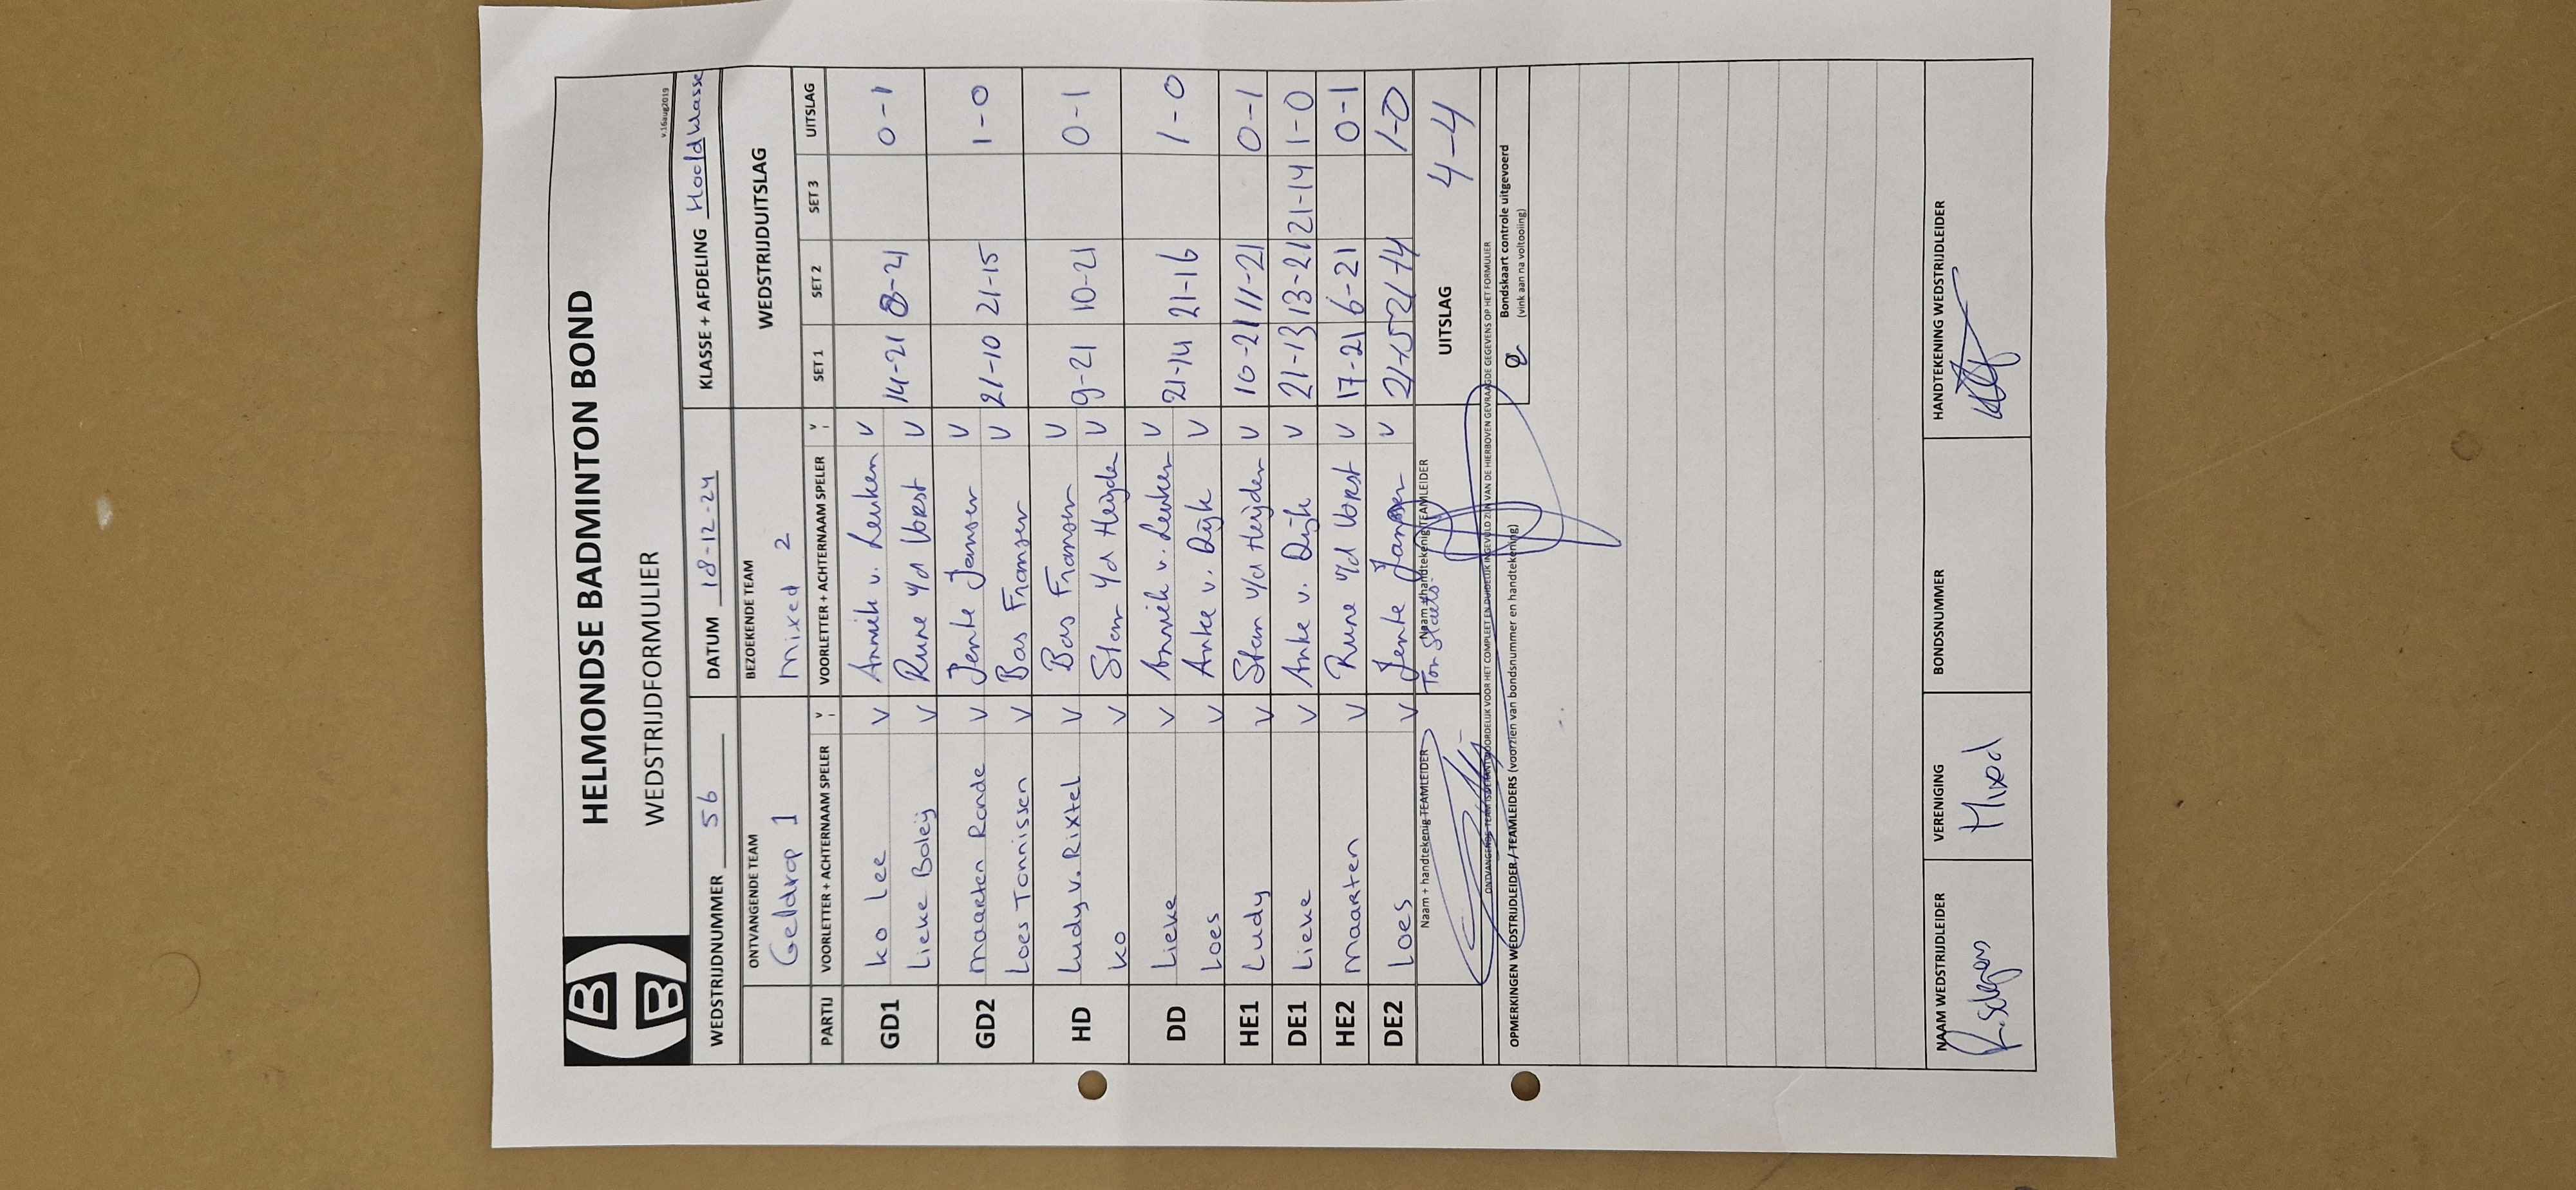 HELMONDSE BADMINTON BOND
WEDSTRIJDFORMULIER
v.16aug2019
WEDSTRIJDNUMMER 56 DATUM 18-12-24 KLASSE + AFDELING Hoofdklasse
ONTVANGENDE TEAM BEZOEKENDE TEAM WEDSTRIJDUITSLAG
Geldrop 1 Mixed 2
PARTIJ VOORLETTER + ACHTERNAAM SPELER V VOORLETTER + ACHTERNAAM SPELER V SET 1 SET 2 SET 3 UITSLAG
GD1 Ko Lee V Anniek v. Leuken V 14-21 8-21 0-1
Lieke Boleij V Rune v/d Vorst V
GD2 Maarten Rande V Jenke Jansen V 21-10 21-15 1-0
Loes Tonnissen V Bas Fransen V
HD Ludy v. Rixtel V Bas Fransen V 9-21 10-21 0-1
Ko V Stan v/d Heijden V
DD Lieke V Anniek v. Leuken V 21-14 21-16 1-0
Loes V Anke v. Dijk V
HE1 Ludy V Stan v/d Heijden V 16-21 11-21 0-1
DE1 Lieke V Anke v. Dijk V 21-13 13-21 21-14 1-0
HE2 Maarten V Rune v/d Vorst V 17-21 6-21 0-1
DE2 Loes V Jenke Jansen V 21-15 21-14 1-0
Naam + handtekenig TEAMLEIDER Naam + handtekenig TEAMLEIDER UITSLAG 4-4
Ton Staals
ONTVANGENDE TEAM IS VERANTWOORDELIJK VOOR HET COMPLEET EN DUIDELIJK INGEVULD ZIJN VAN DE HIERBOVEN GEVRAAGDE GEGEVENS OP HET FORMULIER
OPMERKINGEN WEDSTRIJDLEIDER / TEAMLEIDERS (voorzien van bondsnummer en handtekening)
Bondskaart controle uitgevoerd
(vink aan na voltooiing)
NAAM WEDSTRIJDLEIDER VERENIGING BONDSNUMMER HANDTEKENING WEDSTRIJDLEIDER
Mixed